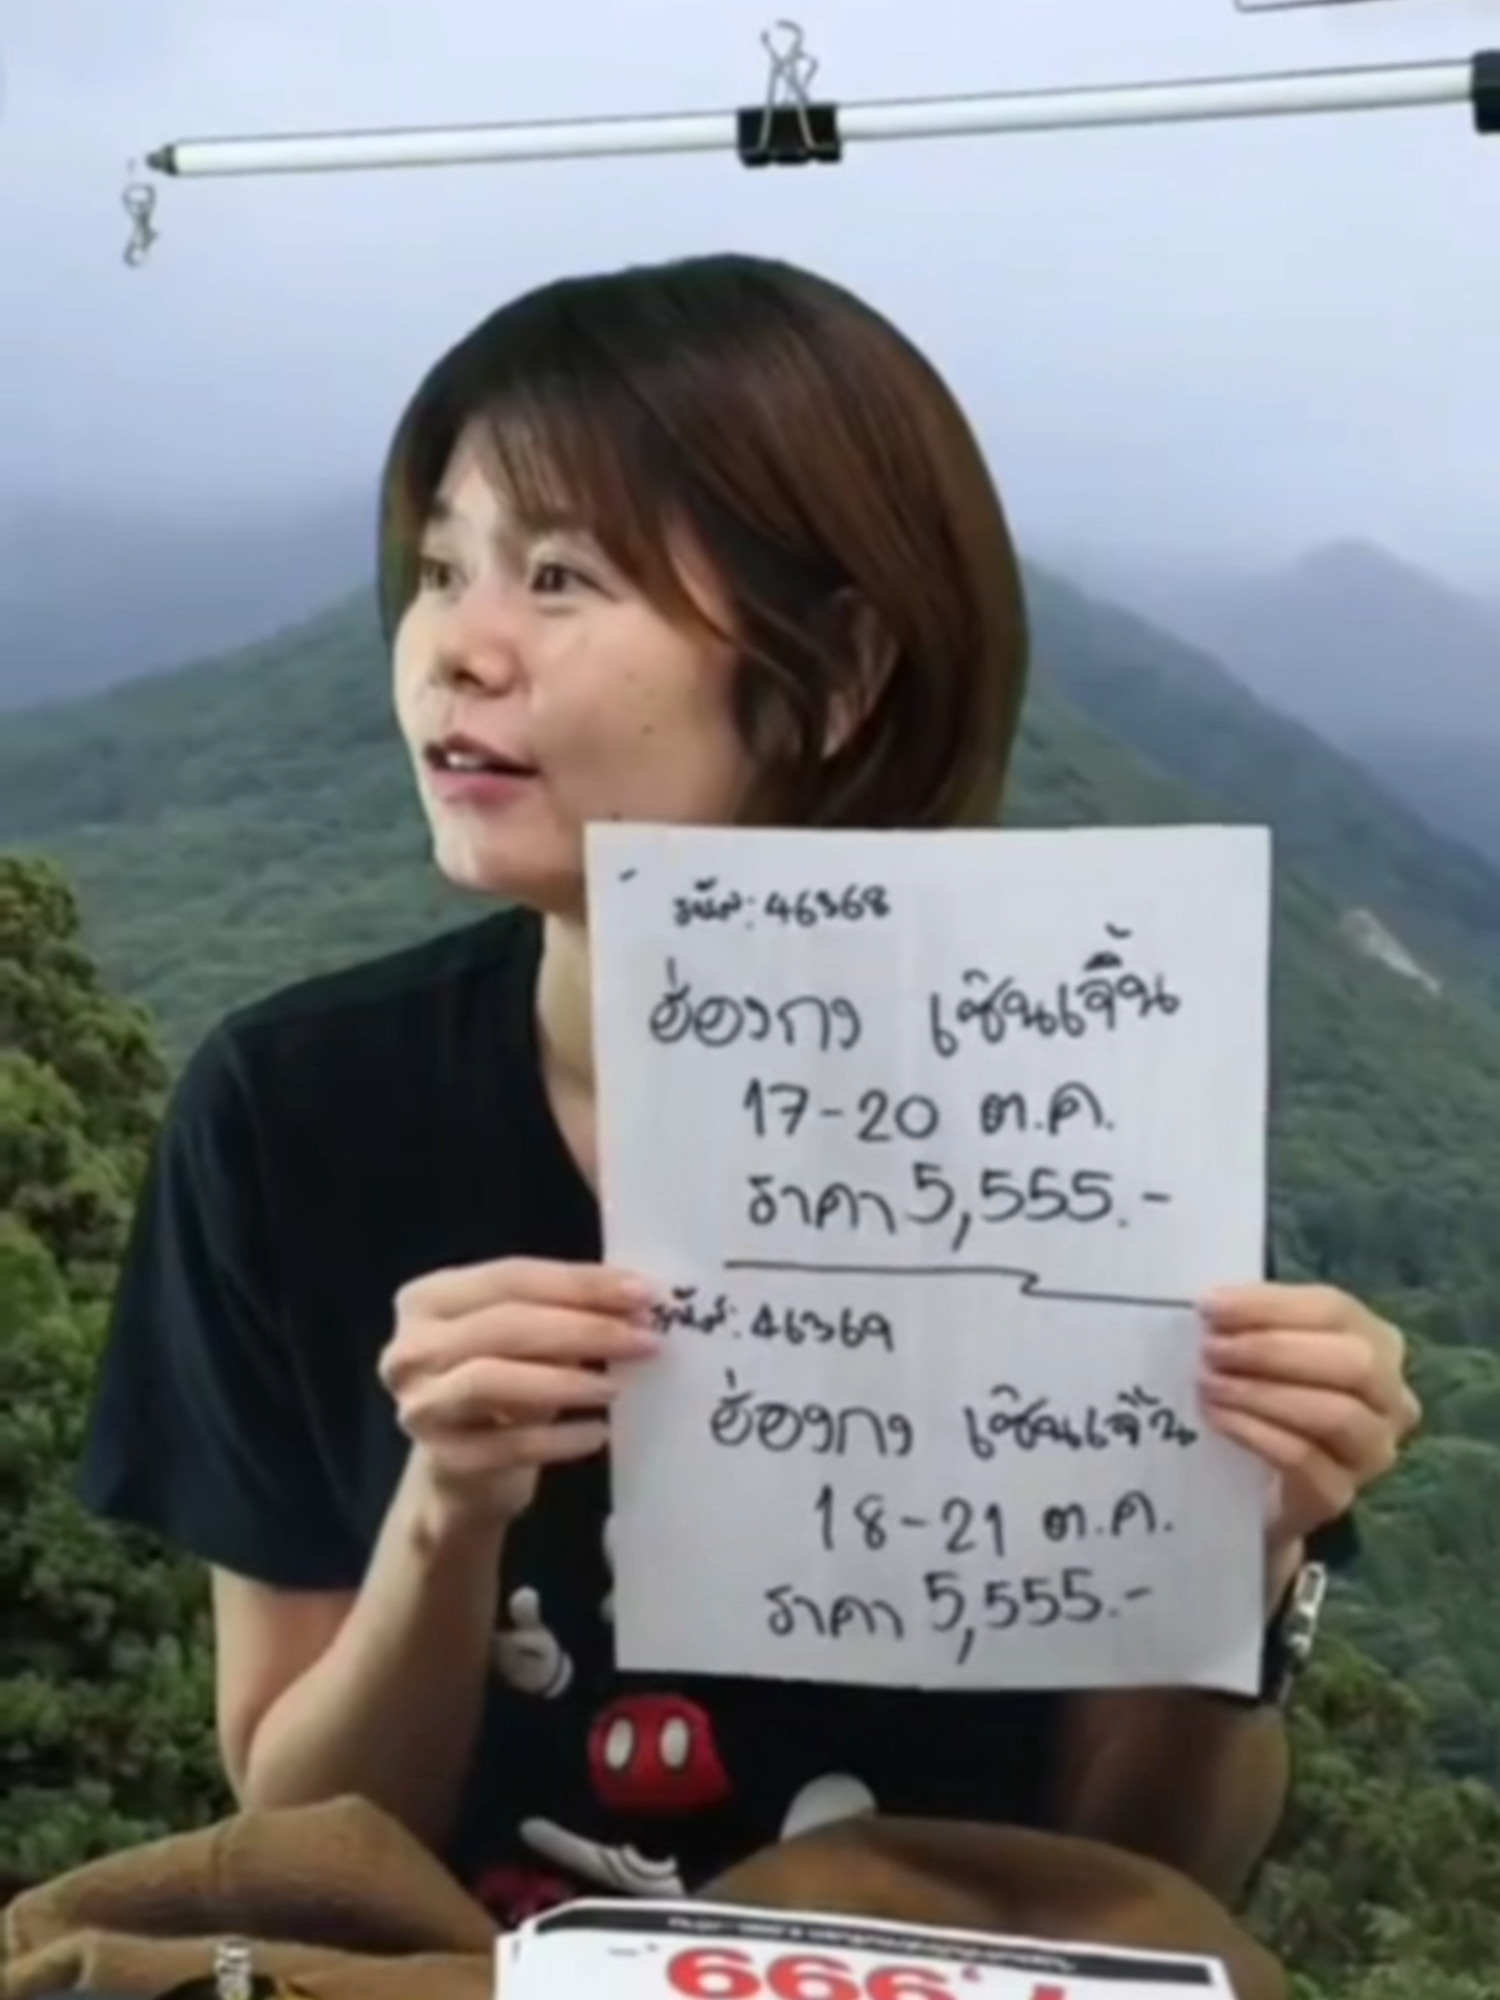 รหัส: 46368
ฮ่องกง เซินเจิ้น
17-20 ต.ค.
ราคา 5,555.-
รหัส: 46369
ฮ่องกง เซินเจิ้น
18-21 ต.ค.
ราคา 5,555.-